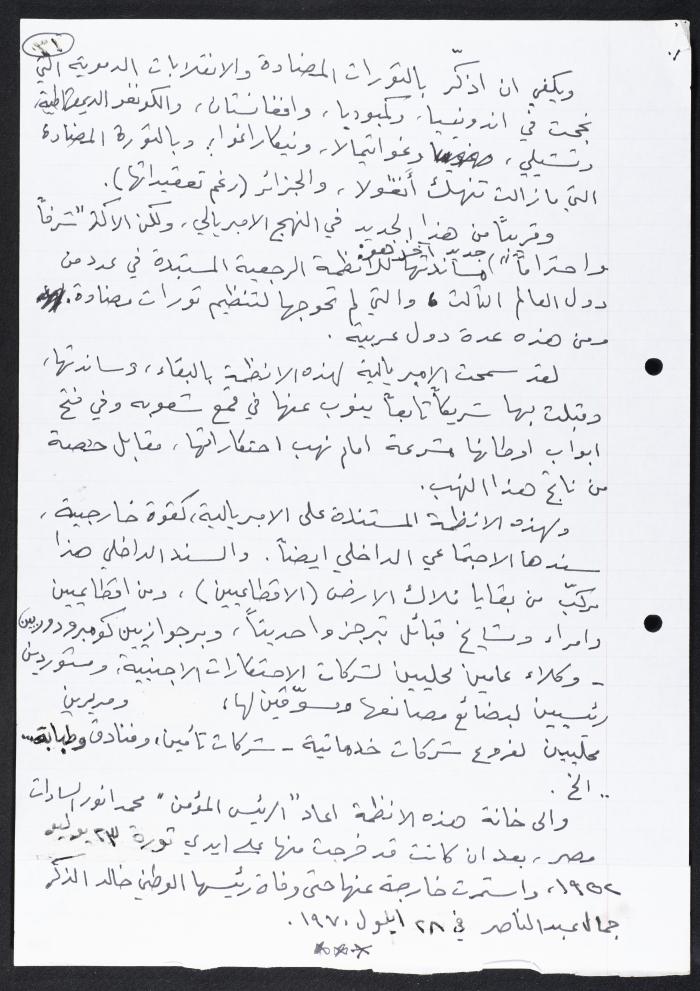 ويكفي ان اذكّر بالثورات المضادة والانقلابات الدموية التي
نجحت في اندونيسيا، وكمبوديا، وافغانستان، والكونغو الديمقراطية،
وتشيلي، وغواتيمالا، ونيكاراغوا؛ وبالثورة المضادة
التي مازالت تنهك أنغولا، والجزائر (رغم تعقيداتها).
وقريباً من هذا الجديد في النهج الامبريالي، ولكن الاكثر "شرفاً
واحتراماً"، جديد آخر هو: مساندتها للأنظمة الرجعية المستبدة في عدد من
دول العالم الثالث، والتي لم تحوجها لتنظيم ثورات مضادة.
ومن هذه عدة دول عربية.
لقد سمحت الامبريالية لهذه الانظمة بالبقاء، وساندتها،
وقبلت بها شريكاً تابعاً ينوب عنها في قمع شعوبه وفي فتح
ابواب اوطانها مشرعة امام نهب احتكاراتها، مقابل حصة
من ناتج هذا النهب.
ولهذه الانظمة المستندة على الامبريالية، كقوة خارجية،
سندها الاجتماعي الداخلي ايضاً. والسند الداخلي هذا
مركّب من بقايا ملاك الارض (الاقطاعيين)، ومن اقطاعيين
وامراء ومشايخ قبائل تبرجزوا حديثاً، وبرجوازيين كومبرودوريين
- وكلاء عامين محليين لشركات الاحتكارات الاجنبية، ومستوردين
رئيسيين لبضائع مصانعها ومسوّقين لها، ومديرين
محليين لفروع شركات خدماتية - شركات تأمين، وفنادق وطبابة...
.. الخ.
والى خانة هذه الانظمة اعاد "الرئيس المؤمن" محمد انور السادات
مصر، بعد ان كانت قد خرجت منها على ايدي ثورة ٢٣ يوليو
١٩٥٢، واستمرت خارجة عنها حتى وفاة رئيسها الوطني خالد الذكر
جمال عبد الناصر في ٢٨ ايلول ١٩٧٠.
***